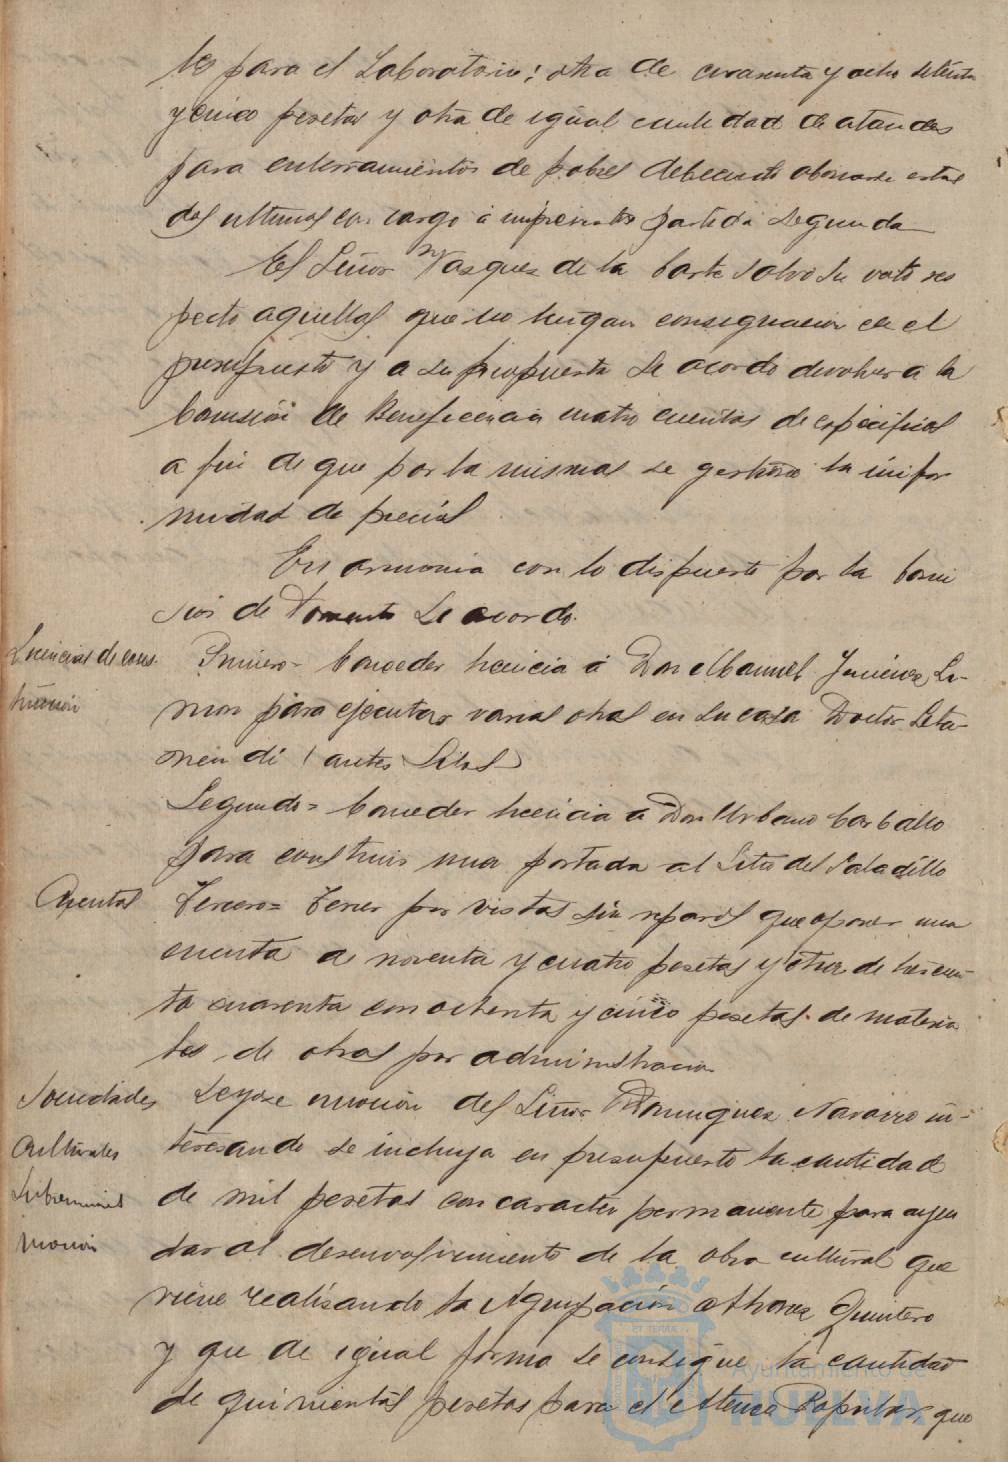 les para el Laboratorio; otra de cuarenta y ocho setenta
y cinco pesetas y otra de igual cantidad de ataudes
para enterramientos de pobres debiendo abonarse estas
dos ultimas con cargo á imprevistos partida segunda
El Señor Vazquez de la Corte salvó su voto res
pecto aquellas que no tengan consignacion en el
presupuesto y a su propuesta se acordó devolver a la
Comisión de Beneficencia cuatro cuentas de especificos
a fin de que por la misma se gestione la unifor
midad de precios
En armonia con lo dispuesto por la Comi
sion de Fomento se acordo.
Licencias de cons-
trucción
Primero- Conceder licencia á Don Manuel Jimenez Li-
mon para ejecutar varias obras en su casa Doctor Leta-
mendi (antes Silos)
Segundo= Conceder licencia a Don Urbano Carballo
para construir una portada al sitio del Saladillo
Cuentas
Tercero= Tener por vistas sin reparos que oponer una
cuenta de noventa y cuatro pesetas y otra de trescien-
ta cuarenta con ochenta y cinco pesetas de materia
les de obras por administracion
Sociedades
culturales
Subvenciones
moción
Leyose moción del Señor Dominguez Navarro in-
teresando se incluya en presupuesto la cantidad
de mil pesetas con caracter permanente para ayu
dar al desenvolvimiento de la obra cultural que
viene realisando la Agrupación Alvarez Quintero
y que de igual forma se consigne la cantidad
de quinientas pesetas para el Ateneo Popular que
Ayuntamiento de
HUELVA